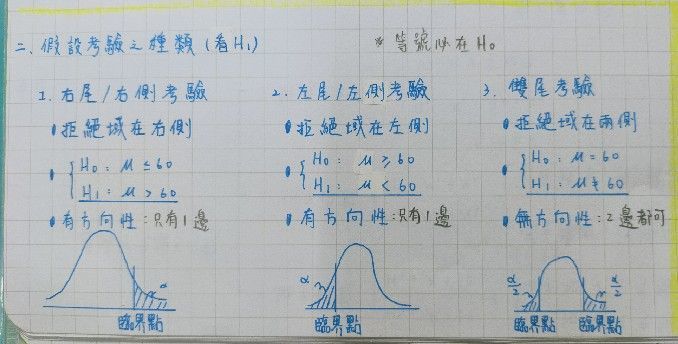 二、假設考驗之種類（看H₁） * 等號必在H₀
1. 右尾/右側考驗
• 拒絕域在右側
• { H₀: μ ≤ 60
H₁: μ > 60
• 有方向性:只有1邊
α
臨界點
2. 左尾/左側考驗
• 拒絕域在左側
• { H₀: μ ≥ 60
H₁: μ < 60
• 有方向性:只有1邊
α
臨界點
3. 雙尾考驗
• 拒絕域在兩側
• { H₀: μ = 60
H₁: μ ≠ 60
• 無方向性:2邊都可
α/2 α/2
臨界點 臨界點